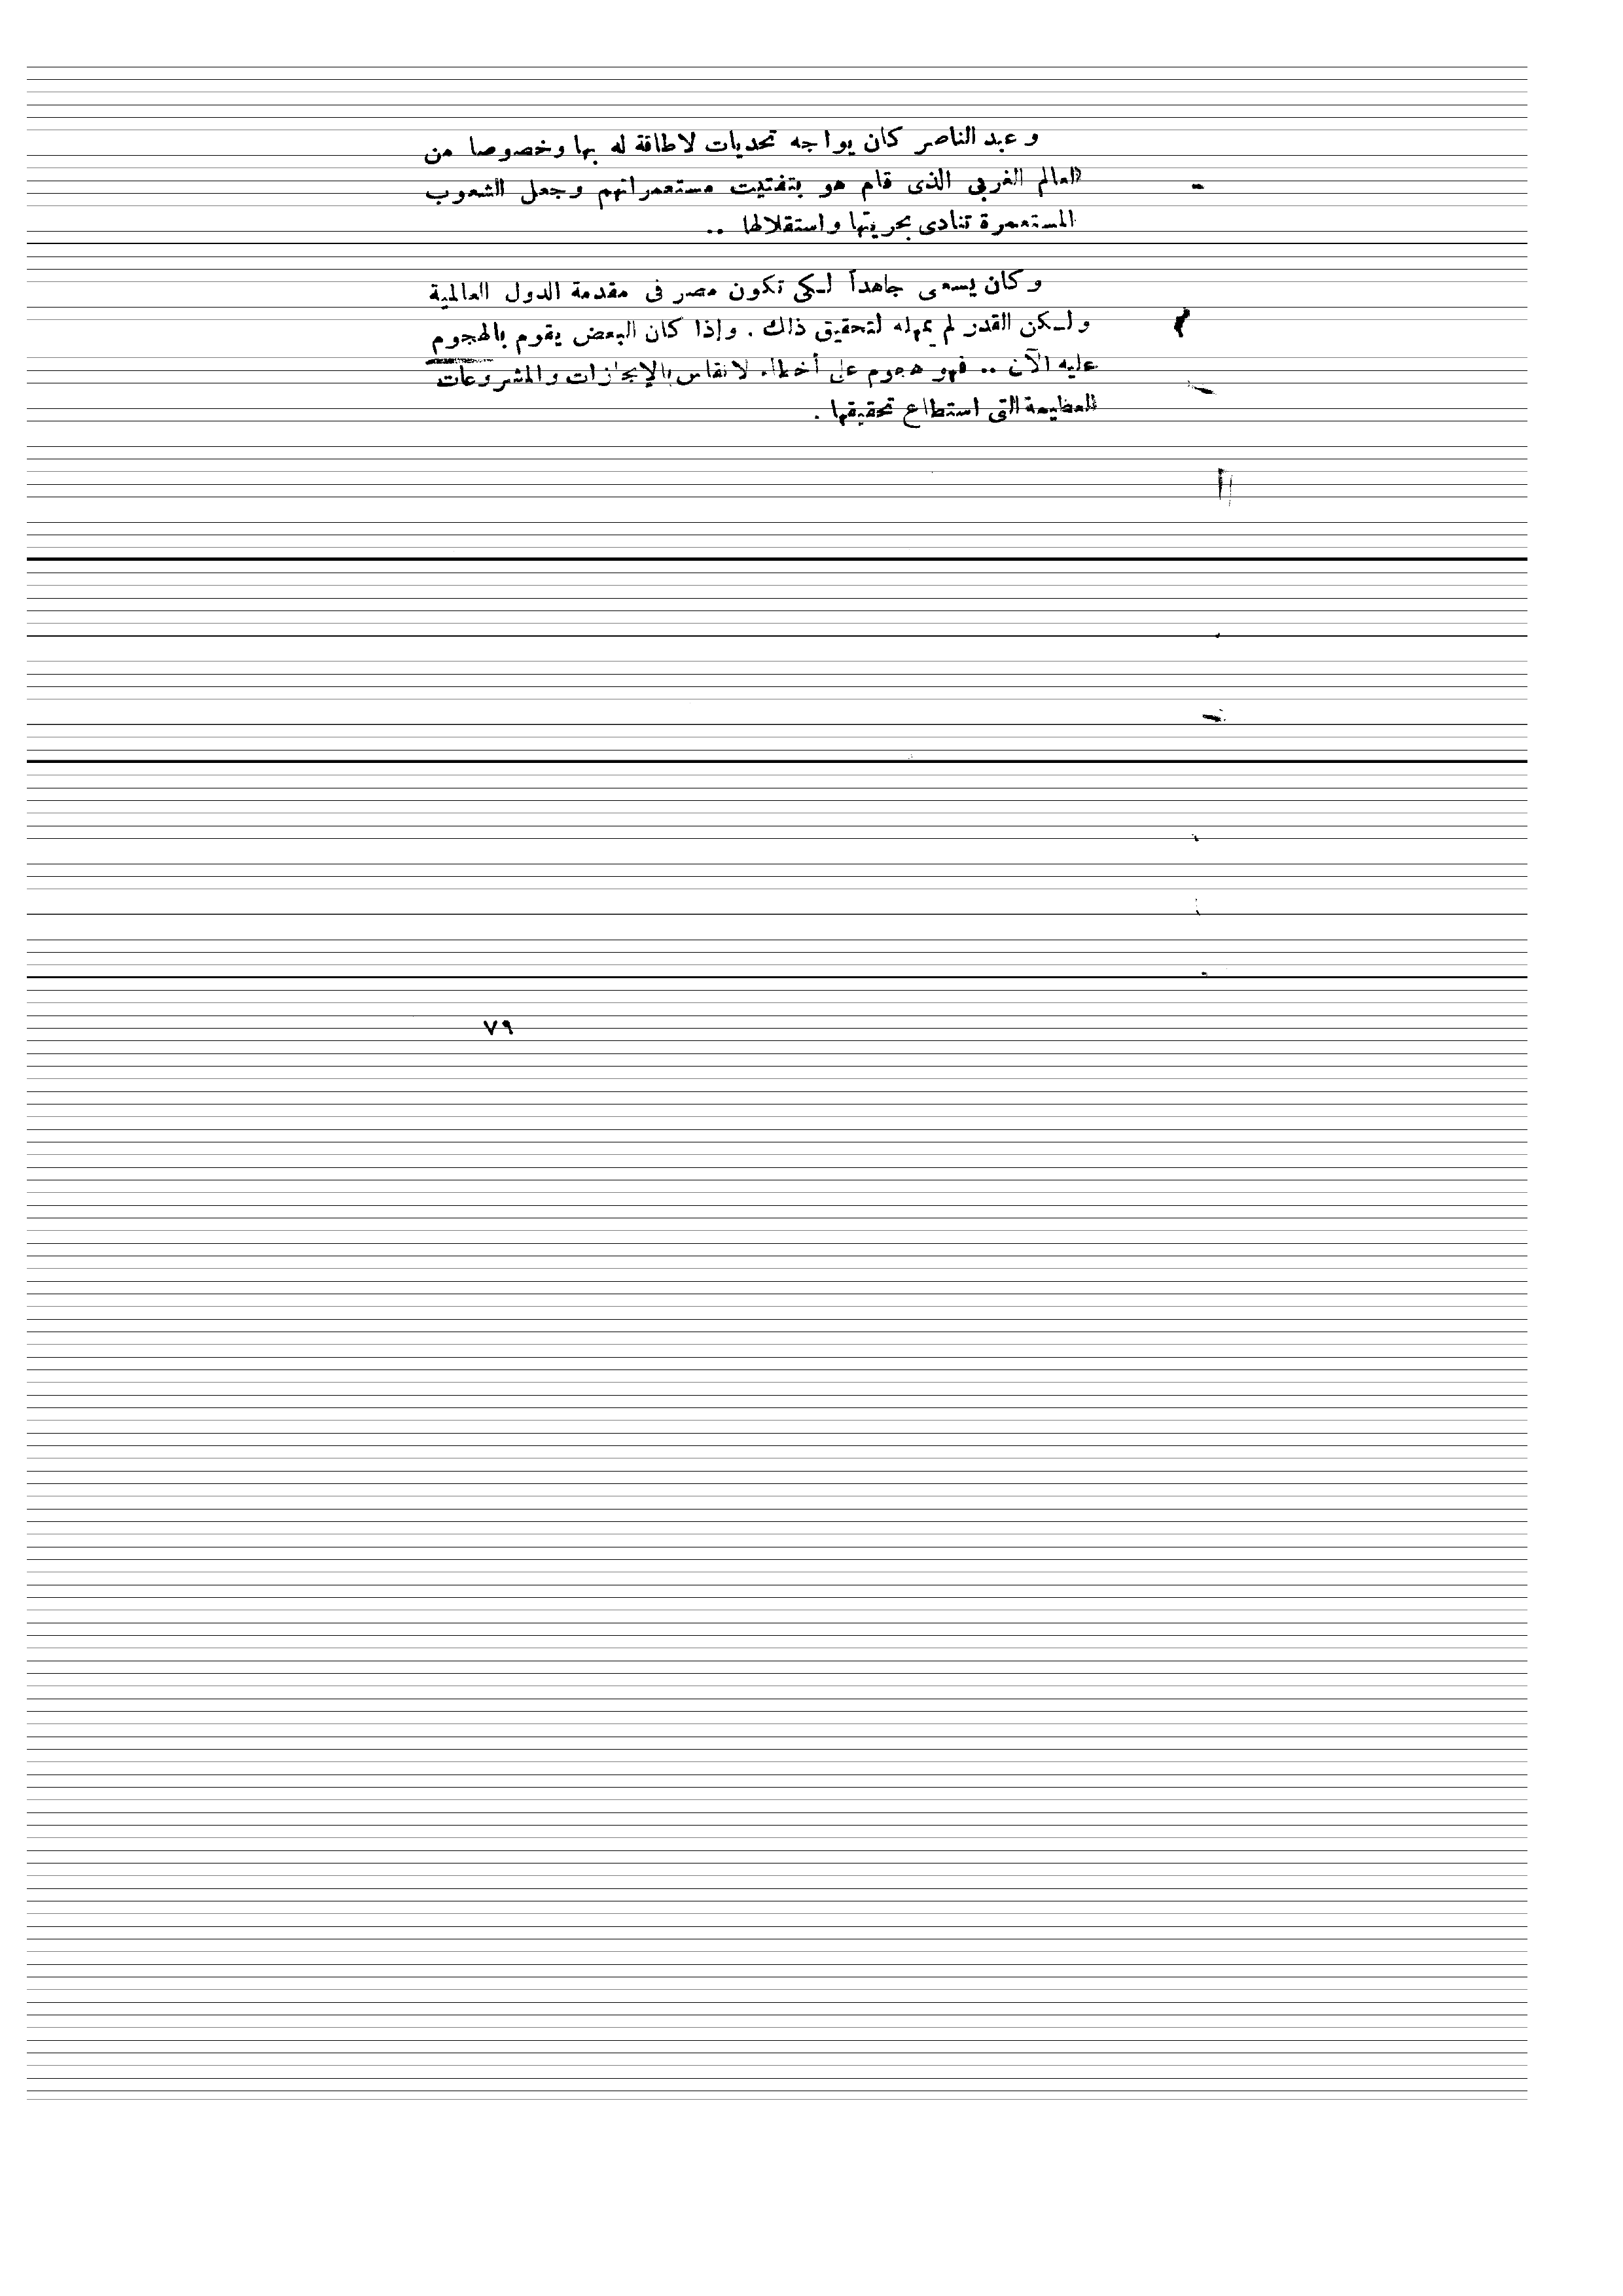 وعبد الناصر كان يواجه تحديات لاطاقة له بها وخصوصا من
العالم الغربى الذى قام هو بتفتيت مستعمراتهم وجعل الشعوب
المستعمرة تنادى بحريتها واستقلالها ..
وكان يسعى جاهداً لكى تكون مصر فى مقدمة الدول العالمية
ولكن القدر لم يمهله لتحقيق ذلك . وإذا كان البعض يقوم بالهجوم
عليه الآن .. فهو هجوم على أخطاء لا تقاس بالإنجازات والمشروعات
العظيمة التى استطاع تحقيقها .
٧٩